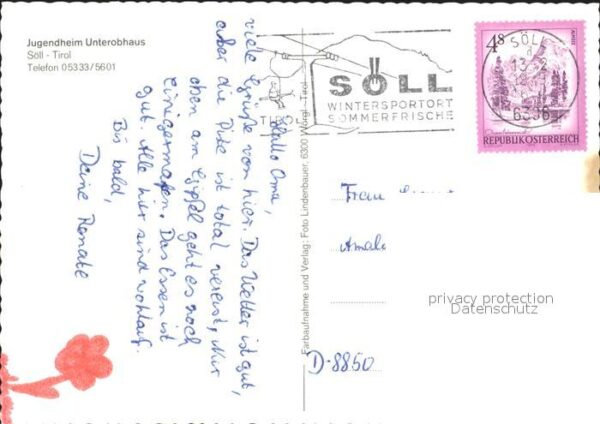 Jugendheim Unterobhaus
Söll - Tirol
Telefon 05333/5601
Hallo Oma,
viele Grüße von hier. Das Wetter ist gut,
aber die Piste ist total vereist, Nur
oben am Gipfel geht es noch
einigermaßen. Das Essen ist
gut. Alle hier sind wohlauf.
Bis bald,
Deine Renate
Farbaufnahme und Verlag: Foto Lindenbauer, 6300 Wörgl - Tirol
TIROL
SÖLL
WINTERSPORTORT
SOMMERFRISCHE
SÖLL
6306
4 S
REPUBLIK ÖSTERREICH
Frau
Amali
D-8850
privacy protection
Datenschutz